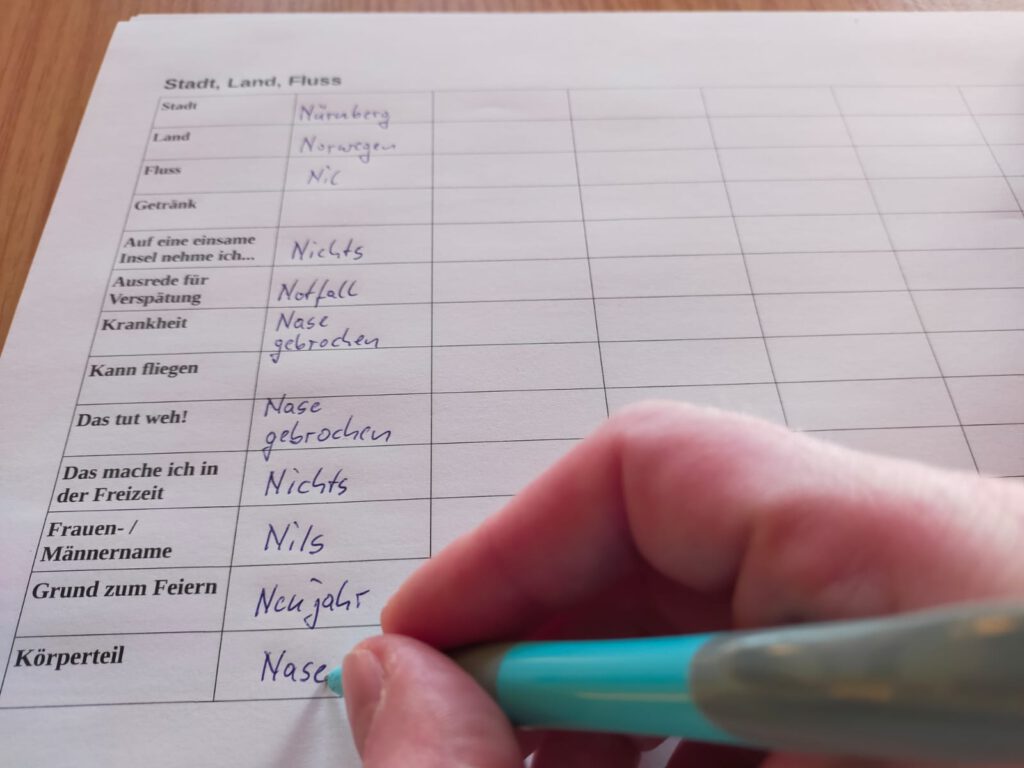 Stadt, Land, Fluss
Stadt Nürnberg
Land Norwegen
Fluss Nil
Getränk
Auf eine einsame
Insel nehme ich... Nichts
Ausrede für
Verspätung Notfall
Krankheit Nase
gebrochen
Kann fliegen
Das tut weh! Nase
gebrochen
Das mache ich in
der Freizeit Nichts
Frauen- /
Männername Nils
Grund zum Feiern Neujahr
Körperteil Nase